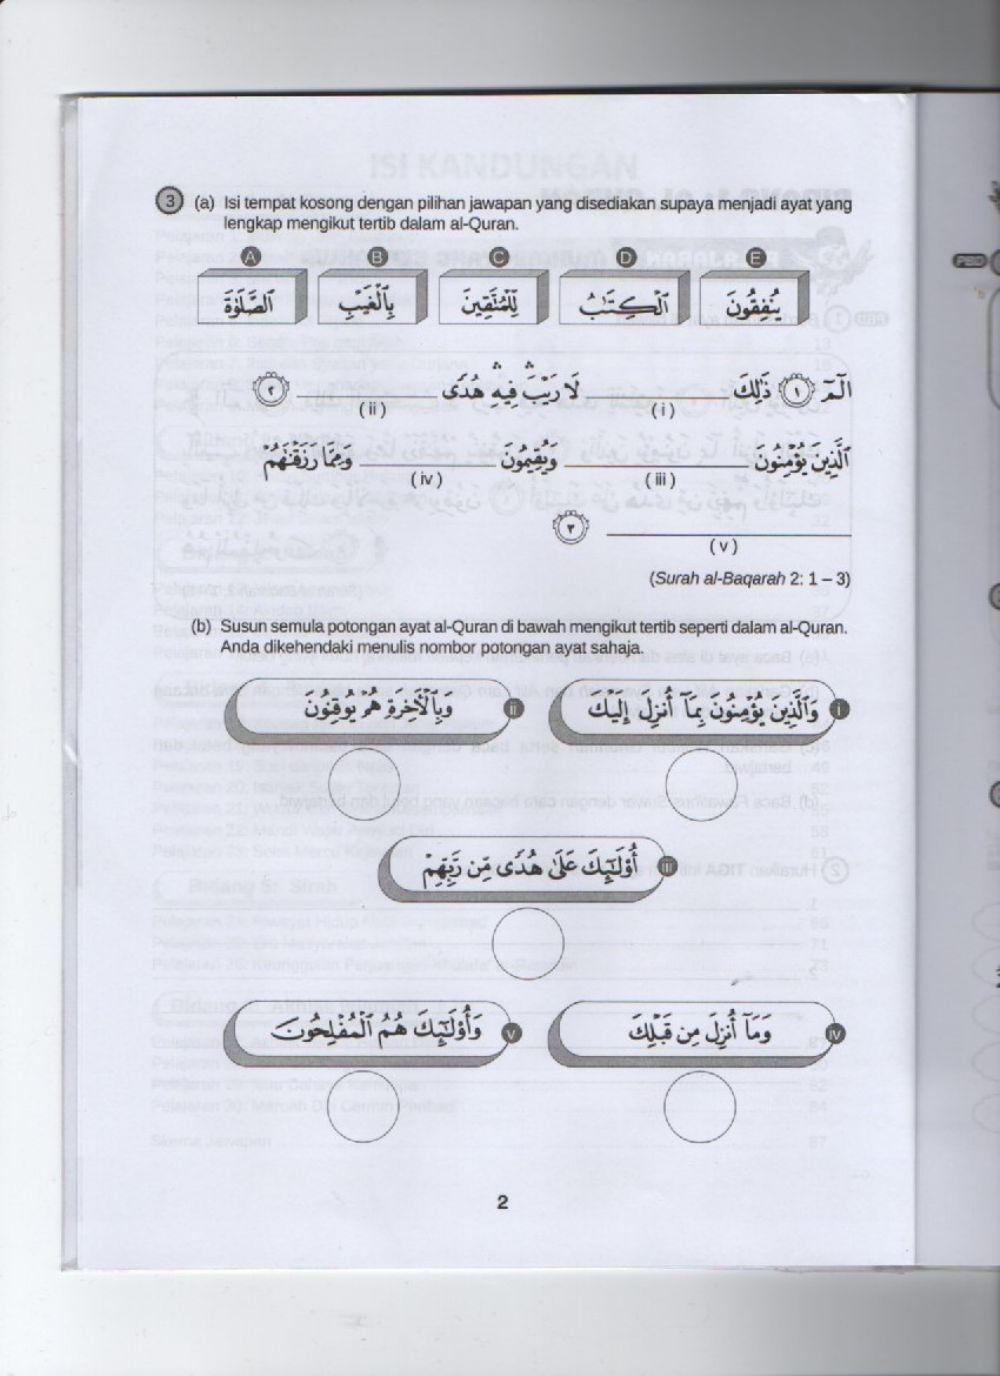 3 (a) Isi tempat kosong dengan pilihan jawapan yang disediakan supaya menjadi ayat yang
lengkap mengikut tertib dalam al-Quran.
A B C D E
ٱلصَّلَوٰةَ بِٱلْغَيْبِ لِّلْمُتَّقِينَ ٱلْكِتَـٰبُ يُنفِقُونَ
الٓمٓ ١ ذَٰلِكَ ____ لَا رَيْبَ ۛ فِيهِ ۛ هُدًى ____ ٢
(i) (ii)
ٱلَّذِينَ يُؤْمِنُونَ ____ وَيُقِيمُونَ ____ وَمِمَّا رَزَقْنَـٰهُمْ
(iii) (iv)
____ ٣
(v)
(Surah al-Baqarah 2: 1 – 3)
(b) Susun semula potongan ayat al-Quran di bawah mengikut tertib seperti dalam al-Quran.
Anda dikehendaki menulis nombor potongan ayat sahaja.
i وَٱلَّذِينَ يُؤْمِنُونَ بِمَآ أُنزِلَ إِلَيْكَ
ii وَبِٱلْـَٔاخِرَةِ هُمْ يُوقِنُونَ
iii أُو۟لَـٰٓئِكَ عَلَىٰ هُدًى مِّن رَّبِّهِمْ
iv وَمَآ أُنزِلَ مِن قَبْلِكَ
v وَأُو۟لَـٰٓئِكَ هُمُ ٱلْمُفْلِحُونَ
2